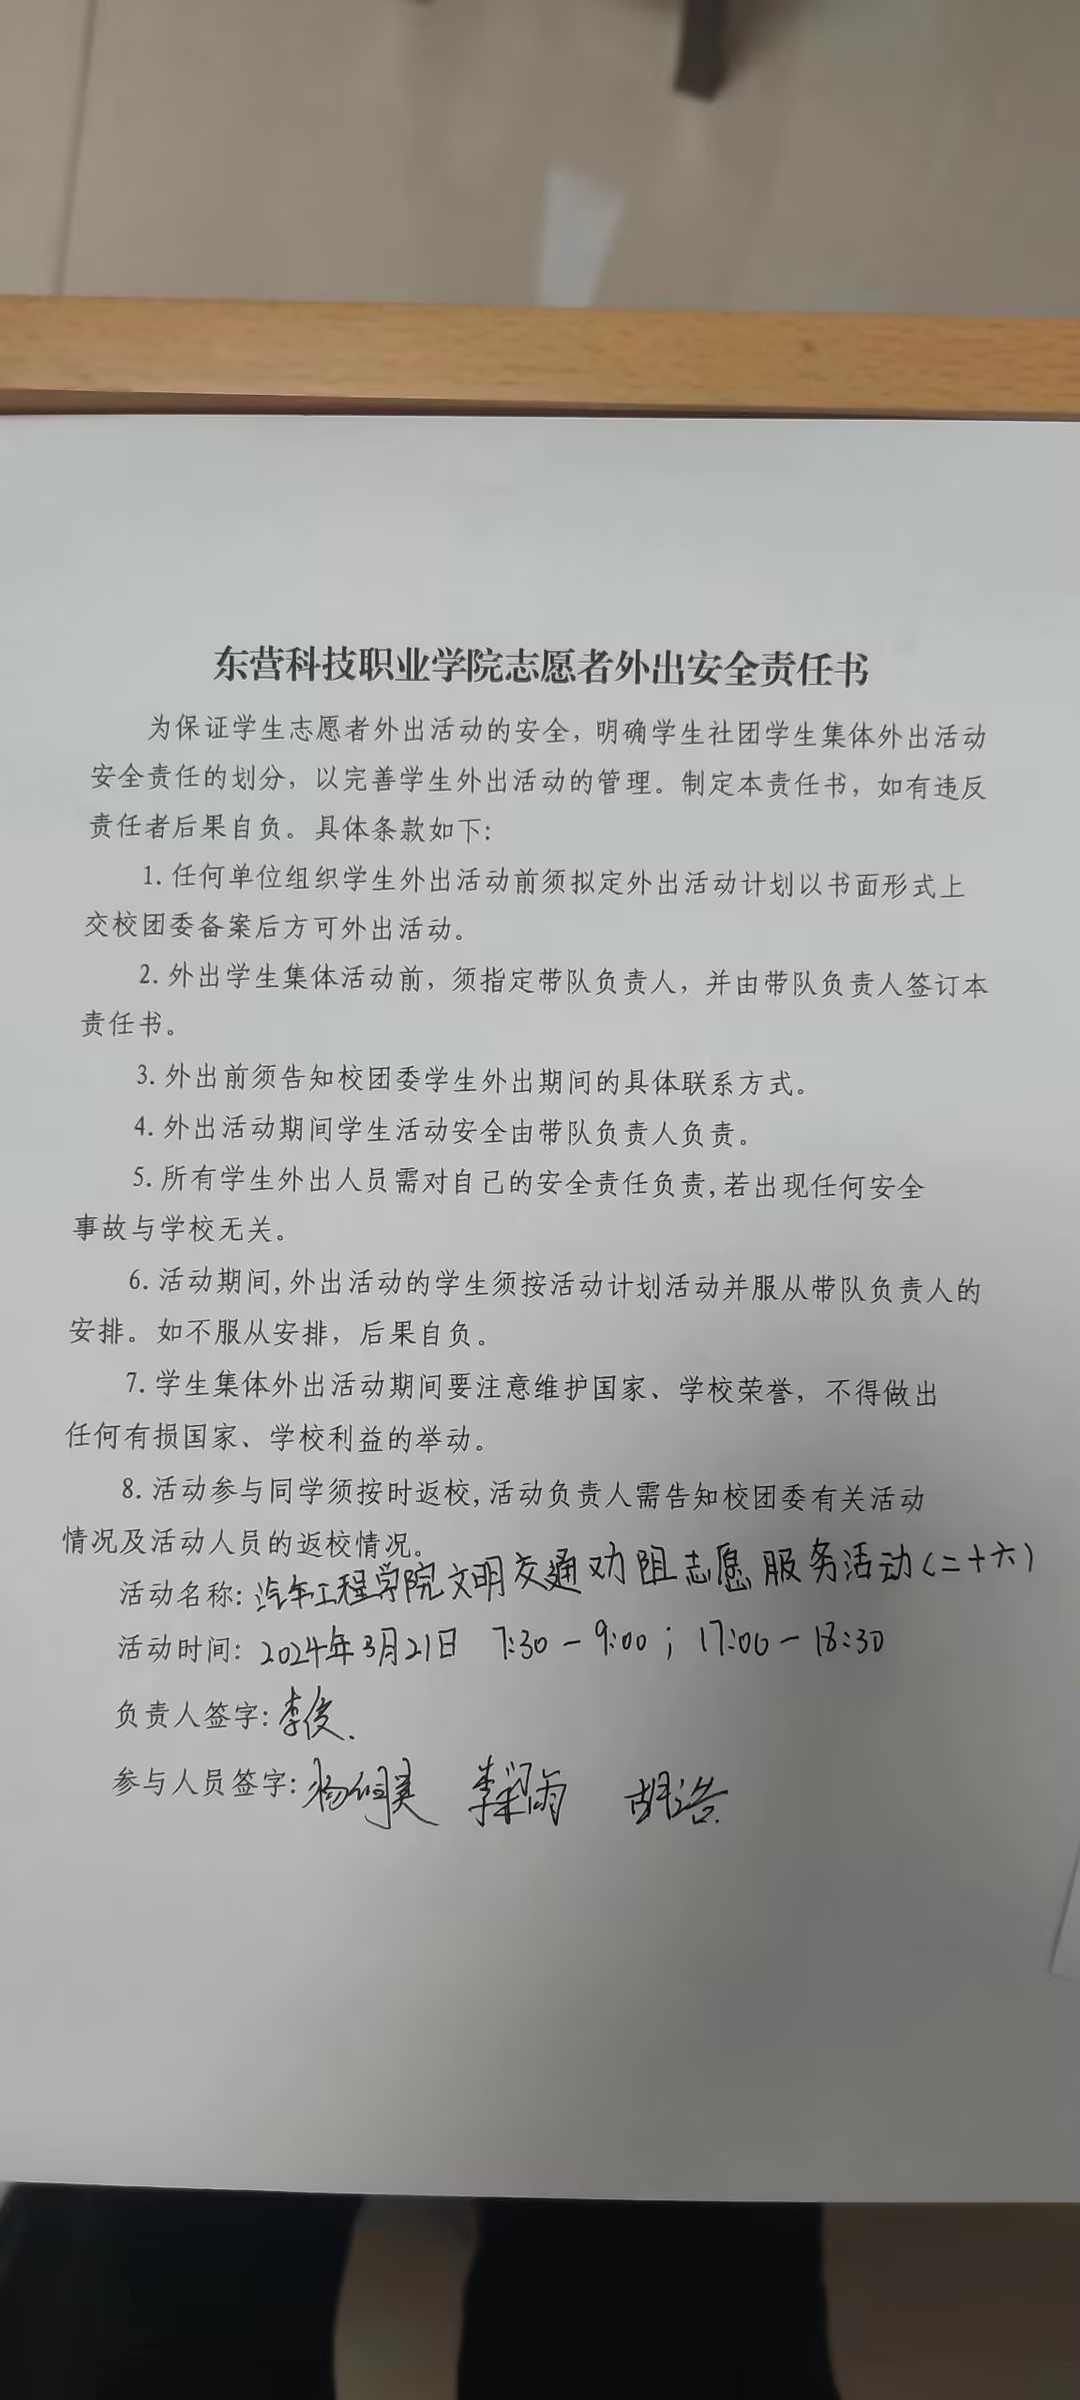 东营科技职业学院志愿者外出安全责任书
为保证学生志愿者外出活动的安全，明确学生社团学生集体外出活动
安全责任的划分，以完善学生外出活动的管理。制定本责任书，如有违反
责任者后果自负。具体条款如下:
1. 任何单位组织学生外出活动前须拟定外出活动计划以书面形式上
交校团委备案后方可外出活动。
2. 外出学生集体活动前，须指定带队负责人，并由带队负责人签订本
责任书。
3. 外出前须告知校团委学生外出期间的具体联系方式。
4. 外出活动期间学生活动安全由带队负责人负责。
5. 所有学生外出人员需对自己的安全责任负责,若出现任何安全
事故与学校无关。
6. 活动期间,外出活动的学生须按活动计划活动并服从带队负责人的
安排。如不服从安排，后果自负。
7. 学生集体外出活动期间要注意维护国家、学校荣誉，不得做出
任何有损国家、学校利益的举动。
8. 活动参与同学须按时返校,活动负责人需告知校团委有关活动
情况及活动人员的返校情况。
活动名称: 汽车工程学院文明交通劝阻志愿服务活动(二十六)
活动时间: 2024年3月21日 7:30-9:00; 17:00-18:30
负责人签字: 李俊.
参与人员签字: 胡浩.